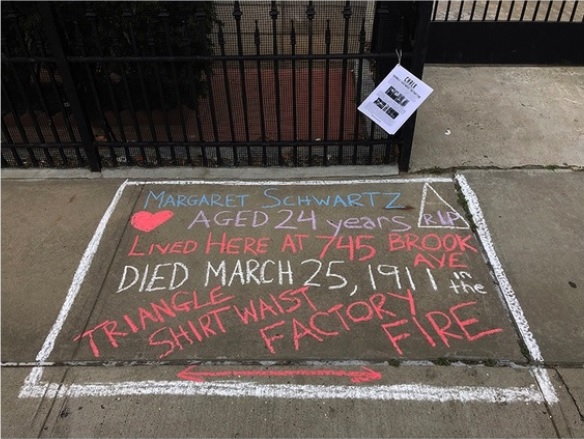 CHALK
MARGARET SCHWARTZ
AGED 24 years
RIP
LIVED HERE AT 745 BROOK
AVE
DIED MARCH 25, 1911 in
the
TRIANGLE
SHIRTWAIST
FACTORY
FIRE